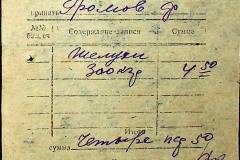 принять Громов Ф
№№ Содержание записи Сумма
Желуди
300 кг 4 50
Итого
сумма Четыре руб 50